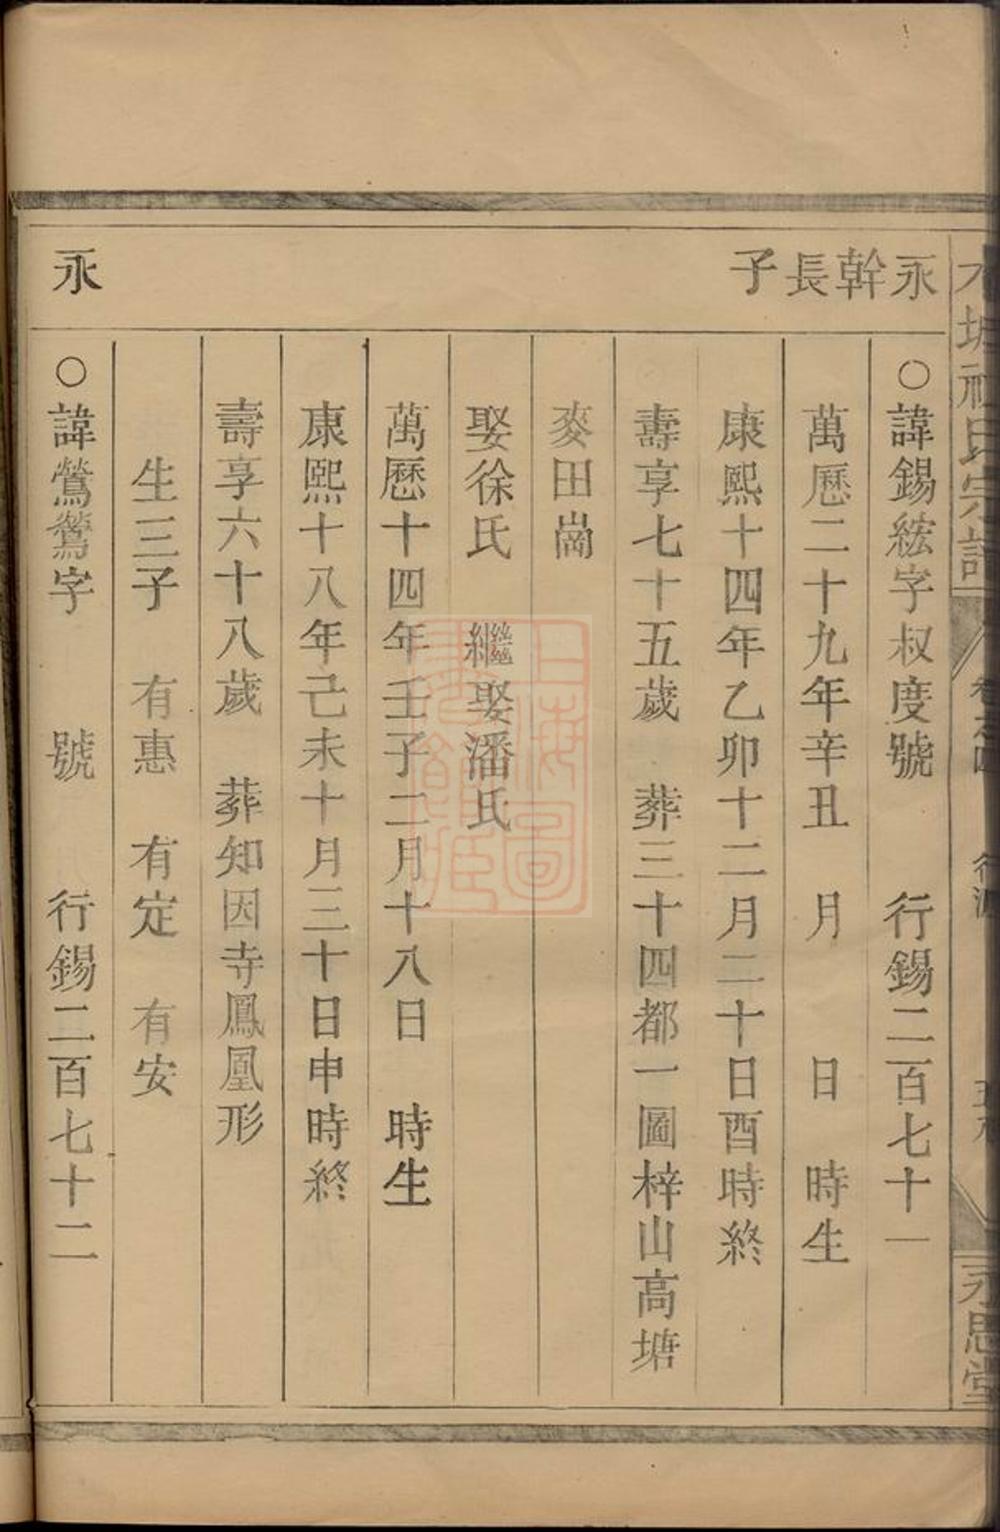 永幹長子
○諱錫綋字叔度號 行錫二百七十一
萬曆二十九年辛丑 月 日 時生
康熙十四年乙卯十二月二十日酉時終
壽享七十五歲 葬三十四都一圖梓山高塘
麥田崗
娶徐氏 繼娶潘氏
萬曆十四年壬子二月十八日 時生
康熙十八年己未十月三十日申時終
壽享六十八歲 葬知因寺鳳凰形
生三子 有惠 有定 有安
永
○諱鶯鶯字 號 行錫二百七十二
氏宗譜
卷之四
行源
永思堂
上海圖書館藏